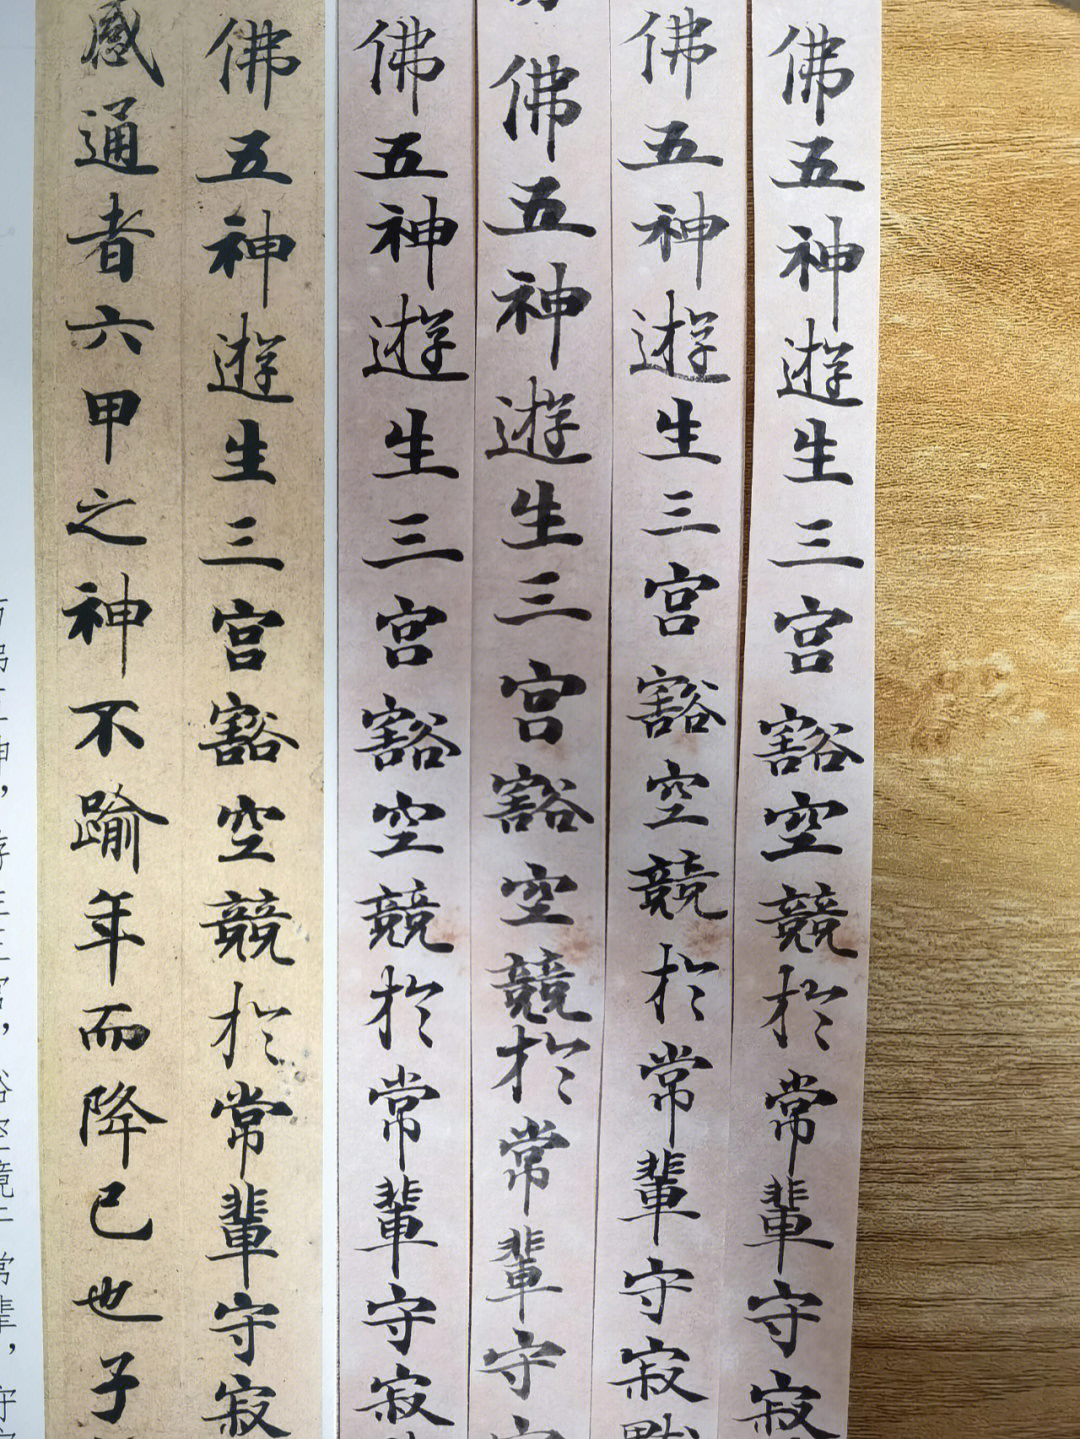 佛五神遊生三宫豁空競於常輩守寂
佛五神遊生三宫豁空競於常輩守寂
佛五神遊生三宫豁空競於常輩守
佛五神遊生三宫豁空競於常輩守寂
佛五神遊生三宫豁空競於常輩守寂
感通者六甲之神不踰年而降已也子